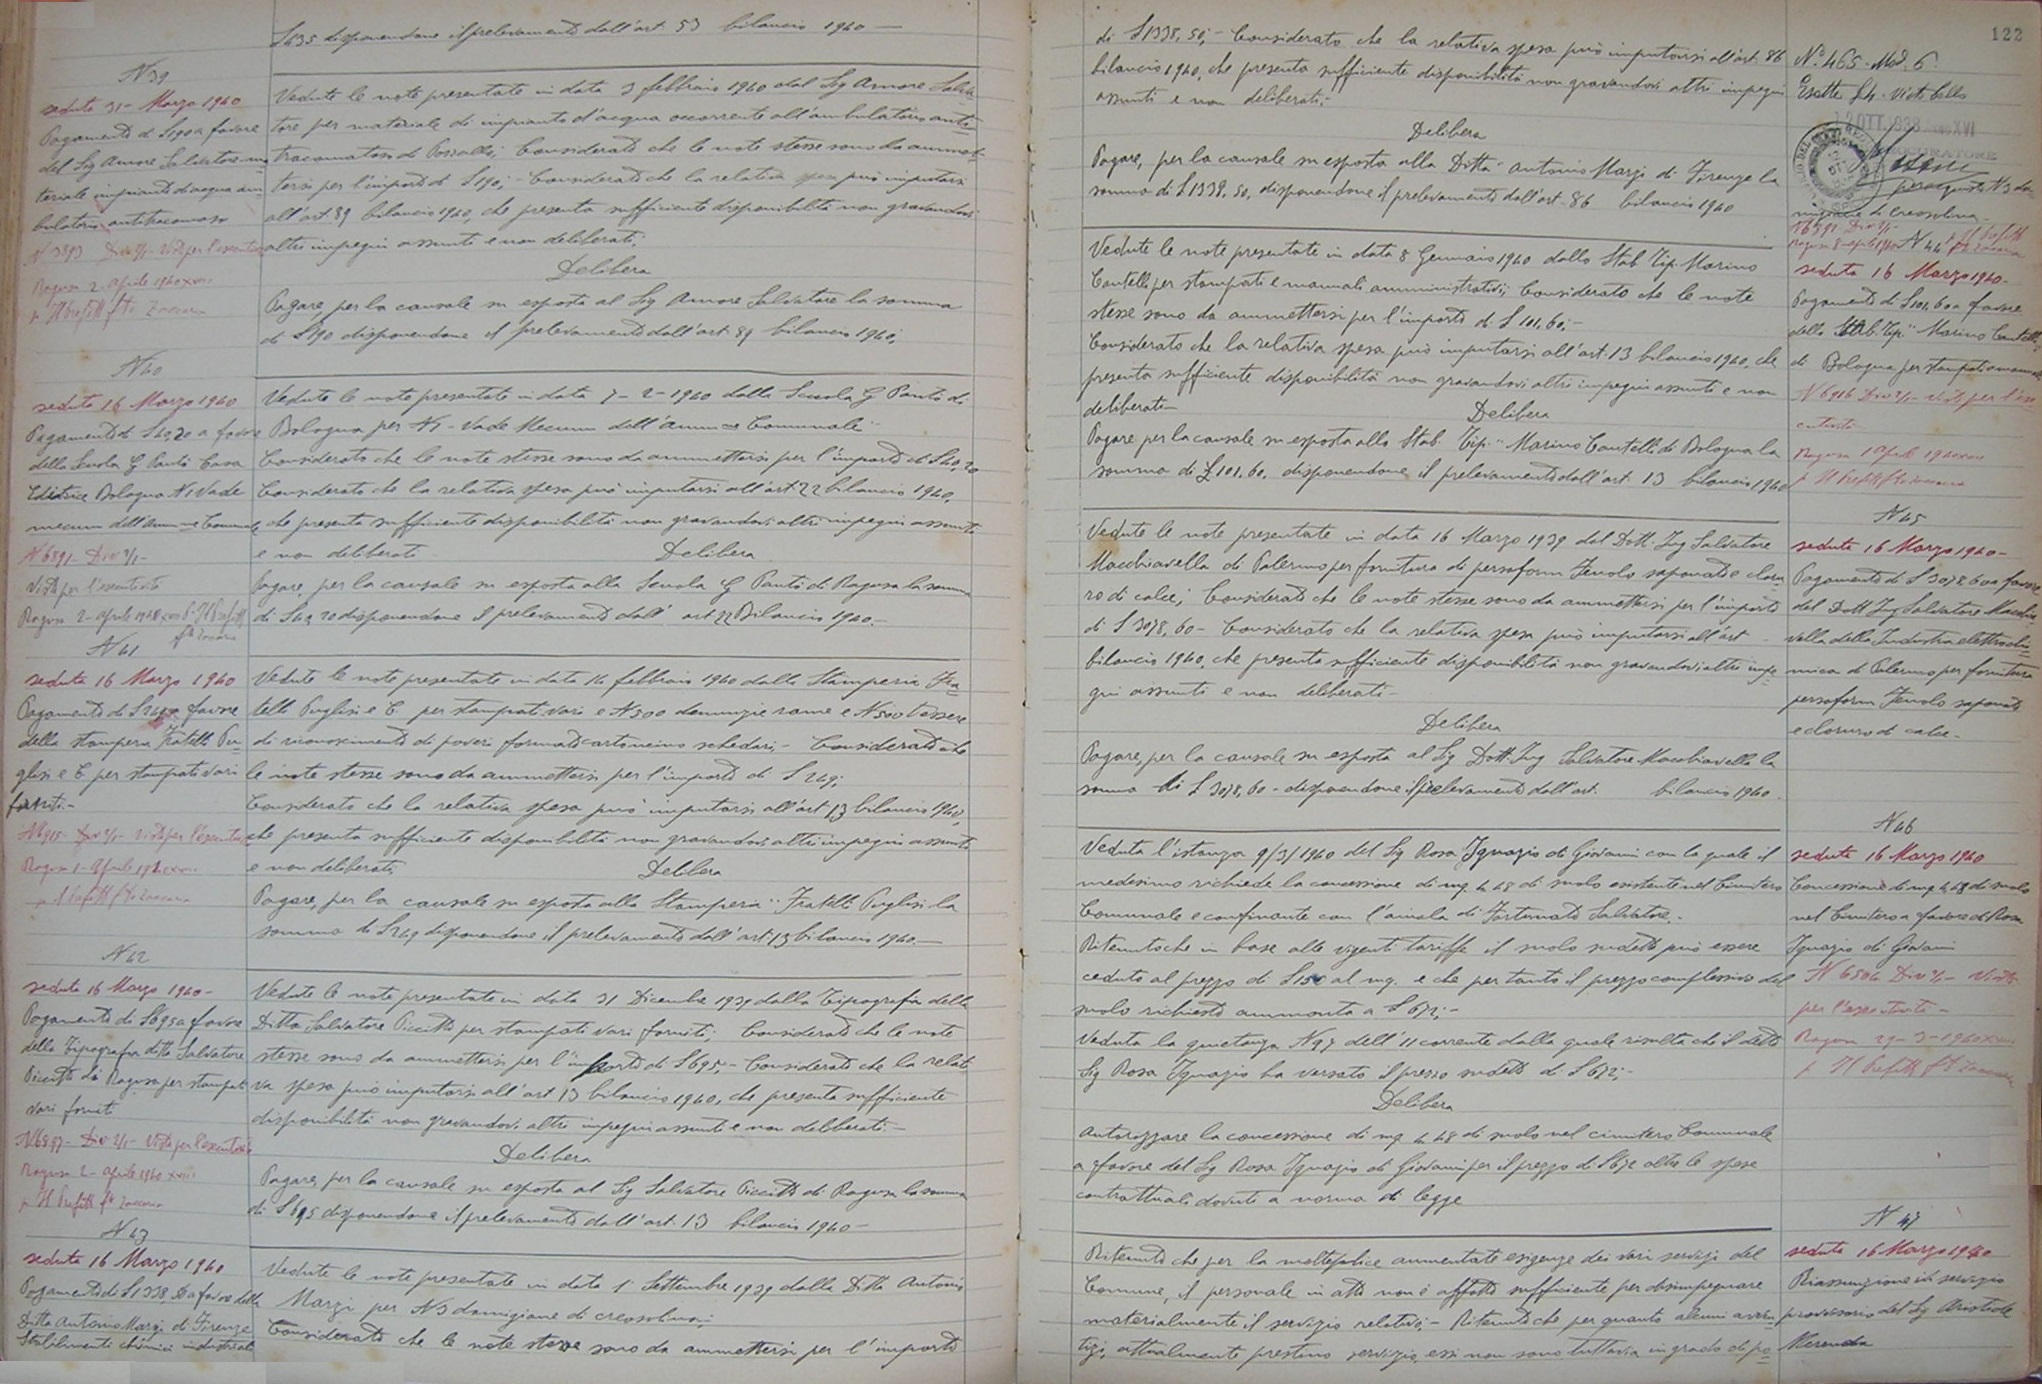 £435 disponendone il prelevamento dall'art. 53 bilancio 1940 —
N 39
seduta 31- Marzo 1940
Pagamento di £190 a favore
del Sig Amore Salvatore ma
teriale impianto di acqua am
bulatorio antitracomatoso
Div 2/1- Visto per l'esecutività
Ragusa 2- Aprile 1940 XVIII
p Il Prefetto fto Zaccaria
Vedute le note presentate in data 3 febbraio 1940 dal Sig Amore Salva
tore per materiale di impianto d'acqua occorrente all'ambulatorio anti
tracomatoso di Pozzallo; Considerato che le note stesse sono da ammet
tersi per l'importo di £190;- Considerato che la relativa spesa può imputarsi
all'art. 89 bilancio 1940, che presenta sufficiente disponibilità non gravandovi
altri impegni assunti e non deliberati;
Delibera
Pagare, per la causale su esposta al Sig Amore Salvatore la somma
di £190 disponendone il prelevamento dall'art. 89 bilancio 1940;
N 40
seduta 16 Marzo 1940
Pagamento di £40,20 a favore
della Scuola G Pantò Casa
Editrice Bologna N 1 Vade
mecum dell'Amm ne Comunale
N 6891- Div 2/1-
Visto per l'esecutività
Ragusa 2- Aprile 1940 XVIII p. Il Prefetto
fto Zaccaria
Vedute le note presentate in data 7-2-1940 dalla Scuola G Pantò di
Bologna per N 1- Vade Mecum dell'Amm ne Comunale
Considerato che le note stesse sono da ammettersi per l'importo di £40,20
Considerato che la relativa spesa può imputarsi all'art 22 bilancio 1940,
che presenta sufficiente disponibilità non gravandovi altri impegni assunti
e non deliberati Delibera
Pagare, per la causale su esposta alla Scuola G Pantò di Ragusa la somma
di £40,20 disponendone il prelevamento dall' art 22 Bilancio 1940.-
N 41
seduta 16 Marzo 1940
Pagamento di £249 a favore
della stamperia Fratelli Pu
glisi e C. per stampati vari
forniti.-
N 6915- Div 2/1- Visto per l'esecutività
Ragusa 1- Aprile 1940 XVIII
p Il Prefetto fto Zaccaria
Vedute le note presentate in data 14 febbraio 1940 dalla Stamperia Fra
telli Puglisi e C. per stampati vari e N 500 denunzie rame e N 500 tessere
di riconoscimento di poveri formato cartoncino schedari,- Considerato che
le note stesse sono da ammettersi per l'importo di £249;
Considerato che la relativa spesa può imputarsi all'art 13 bilancio 1940,
che presenta sufficiente disponibilità non gravandovi altri impegni assunti
e non deliberati;
Delibera
Pagare, per la causale su esposta alla Stamperia "Fratelli Puglisi la
somma di £249 disponendone il prelevamento dall'art. 13 bilancio 1940.—
N 42
seduta 16 Marzo 1940-
Pagamento di £695 a favore
della Tipografia ditta Salvatore
Piccitto di Ragusa per stampati
vari forniti
N 6897- Div 2/1- Visto per l'esecutività
Ragusa 2- Aprile 1940 XVIII
p Il Prefetto fto Zaccaria
Vedute le note presentate in data 31 Dicembre 1939 dalla Tipografia della
Ditta Salvatore Piccitto per stampati vari forniti; Considerato che le note
stesse sono da ammettersi per l'importo di £695;- Considerato che la relati
va spesa può imputarsi all'art 13 bilancio 1940, che presenta sufficiente
disponibilità non gravandovi altri impegni assunti e non deliberati.-
Delibera
Pagare, per la causale su esposta al Sig Salvatore Piccitto di Ragusa la somma
di £695 disponendone il prelevamento dall'art. 13 bilancio 1940-
N 43
seduta 16 Marzo 1940
Pagamento di £1338,50 a favore della
Ditta Antonio Marzi di Firenze
Stabilimenti chimici industriali
Vedute le note presentate in data 1° Settembre 1939 dalla Ditta Antonio
Marzi per N 3 damigiane di creosolina;-
Considerato che le note stesse sono da ammettersi per l'importo
122
di £1338,50;- Considerato che la relativa spesa può imputarsi all'art. 86
bilancio 1940, che presenta sufficiente disponibilità non gravandovi altri impegni
assunti e non deliberati;-
Delibera
Pagare, per la causale su esposta alla Ditta Antonio Marzi di Firenze la
somma di £1339.50, disponendone il prelevamento dall'art. 86 bilancio 1940
N° 465. Mod. 6
2 OTT. 1938 XVI
PROCURATORE
per acquisto N 3 da
migiane di creosolina
Ragusa 8- Aprile 1940
N 44
seduta 16 Marzo 1940-
Pagamento di £101,60 a favore
dello Stab. Tip. "Marino Cantelli
di Bologna per stampati e manuali
N 6916 Div 2/1- Visto per l'ese
cutività
Ragusa 1 Aprile 1940 XVIII
p Il Prefetto fto Zaccaria
Vedute le note presentate in data 8 Gennaio 1940 dallo Stab. Tip. Marino
Cantelli per stampati e manuali amministrativi; Considerato che le note
stesse sono da ammettersi per l'importo di £ 101,60;-
Considerato che la relativa spesa può imputarsi all'art. 13 bilancio 1940, che
presenta sufficiente disponibilità non gravandovi altri impegni assunti e non
deliberati- Delibera
Pagare per la causale su esposta allo Stab. Tip. "Marino Cantelli di Bologna la
somma di £101.60, disponendone il prelevamento dall'art. 13 bilancio 1940
N 45
seduta 16 Marzo 1940-
Pagamento di £ 3078,60 a favore
del Dott Ing Salvatore Macchia
vella della Industria elettrochi
mica di Palermo per fornitura
persoform Fenolo saponato
e cloruro di calce-
Vedute le note presentate in data 16 Marzo 1939 dal Dott. Ing Salvatore
Macchiavella di Palermo per fornitura di persoform Fenolo saponato e cloru
ro di calce; Considerato che le note stesse sono da ammettersi per l'importo
di £ 3078,60- Considerato che la relativa spesa può imputarsi all'art -
bilancio 1940, che presenta sufficiente disponibilità non gravandovi altri impe
gni assunti e non deliberati-
Delibera
Pagare, per la causale su esposta al Sig Dott. Ing Salvatore Macchiavella la
somma di £ 3078,60- disponendone il prelevamento dall'art. bilancio 1940.
N 46
seduta 16 Marzo 1940
Concessione di mq 4,48 di suolo
nel Cimitero a favore di Rosa
Ignazio di Giovanni
N 6504 Div 2/1- Visto
per l'esecutività-
Ragusa 29-3-1940 XVIII
p Il Prefetto fto Zaccaria
Veduta l'istanza 9/3/1940 del Sig Rosa Ignazio di Giovanni con la quale il
medesimo richiede la concessione di mq 4,48 di suolo esistente nel Cimitero
Comunale e confinante con l'aiuola di Fortunato Salvatore.-
Ritenuto che in base alle vigenti tariffe il suolo sudetto può essere
ceduto al prezzo di £150 al mq. e che per tanto il prezzo complessivo del
suolo richiesto ammonta a £ 672;-
Veduta la quietanza N 97 dell'11 corrente dalla quale risulta che il detto
Sig Rosa Ignazio ha versato il prezzo sudetto di £ 672;-
Delibera
Autorizzare la concessione di mq 4,48 di suolo nel cimitero Comunale
a favore del Sig Rosa Ignazio di Giovanni per il prezzo di £672 oltre le spese
contrattuali dovute a norma di legge
N 47
seduta 16 Marzo 1940
Riassunzione in servizio
provvisorio del Sig Aristide
Merenda
Ritenuto che per la molteplice aumentate esigenze dei vari servizi del
Comune, il personale in atto non è affatto sufficiente per disimpegnare
materialmente il servizio relativo;- Ritenuto che per quanto alcuni avven
tizi, attualmente prestino servizio, essi non sono tuttavia in grado di po